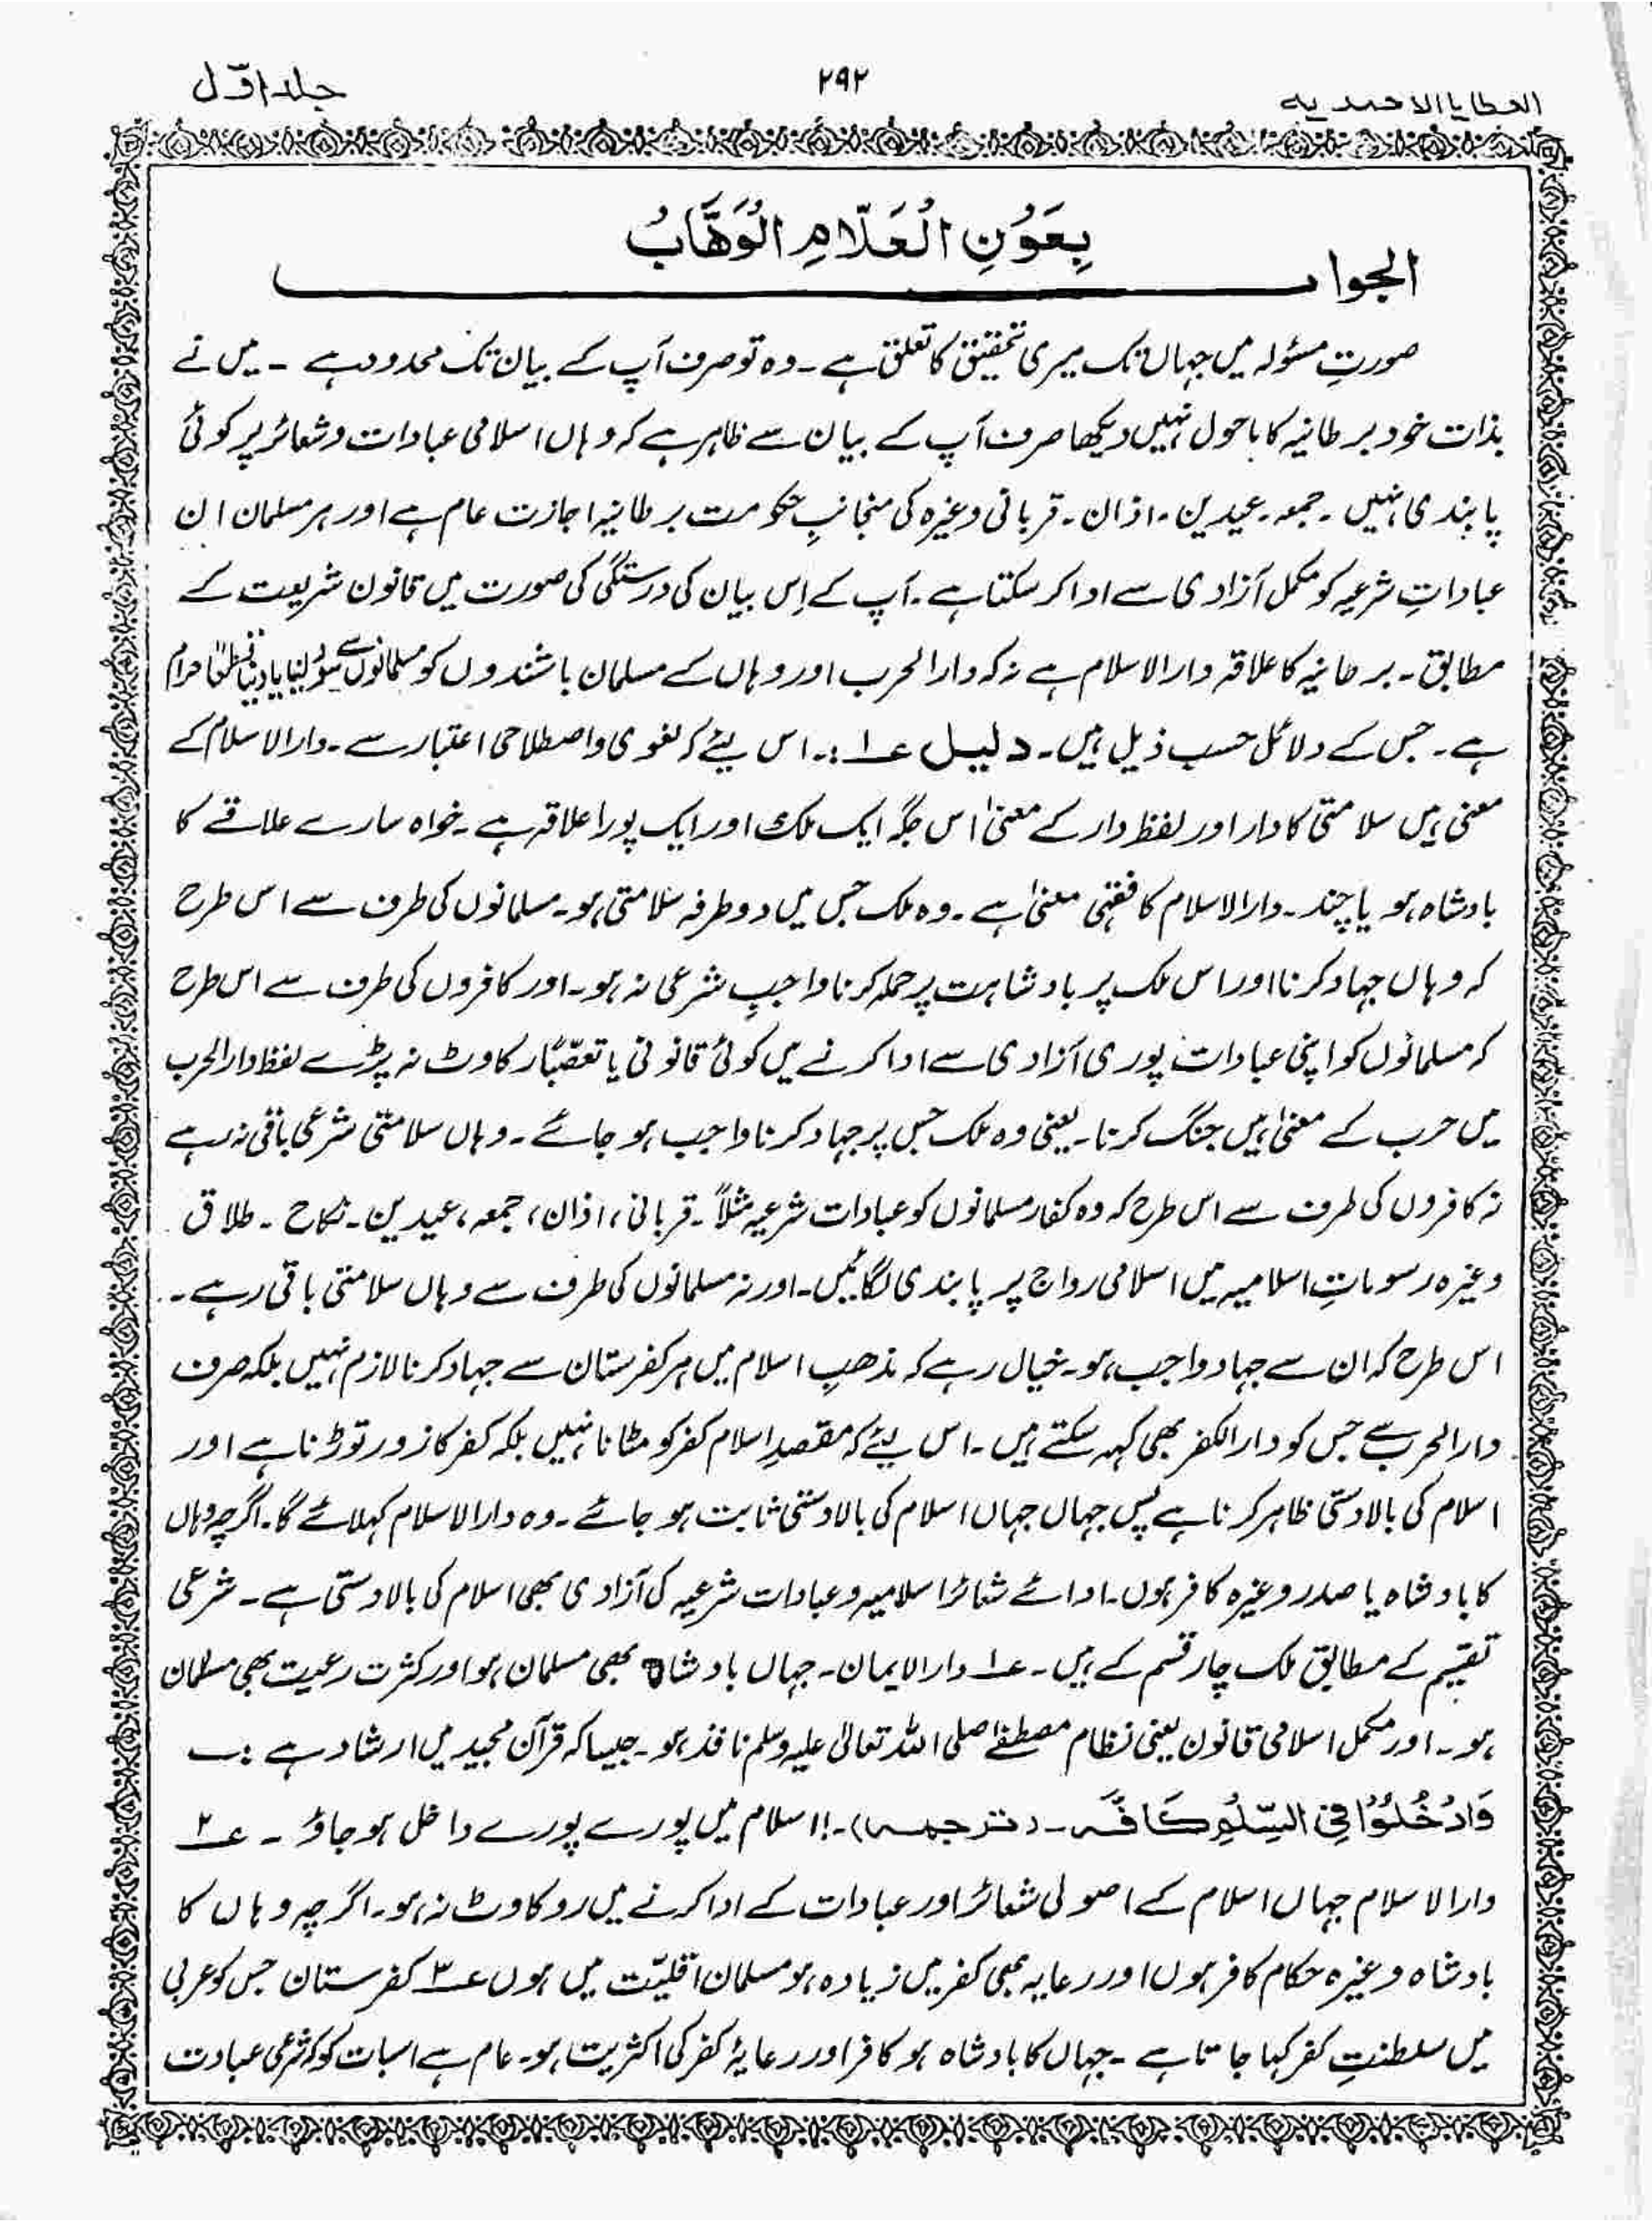 العطایا الاحمدیہ
۲۹۲
جلد اوّل
بِعَوْنِ الْعَلَّامِ الْوَهَّابُ
الجواب
صورتِ مسئولہ میں جہاں تک میری تحقیق کا تعلق ہے ۔ وہ تو صرف آپ کے بیان تک محدود ہے ۔ میں نے
بذات خود برطانیہ کا ماحول نہیں دیکھا صرف آپ کے بیان سے ظاہر ہے کہ وہاں اسلامی عبادات و شعائر پر کوئی
پابندی نہیں ۔ جمعہ ۔ عیدین ۔ اذان ۔ قربانی وغیرہ کی منجانبِ حکومت برطانیہ اجازت عام ہے اور ہر مسلمان ان
عباداتِ شرعیہ کو مکمل آزادی سے ادا کر سکتا ہے ۔ آپ کے اِس بیان کی درستگی کی صورت میں قانون شریعت کے
مطابق ۔ برطانیہ کا علاقہ دارالاسلام ہے نہ کہ دارالحرب اور وہاں کے مسلمان باشندوں کو مسلمانوں سے سود لینا یا دینا قطعًا حرام
ہے ۔ جس کے دلائل حسب ذیل ہیں ۔ دلیل ؏۱ :۔ اس لیئے کہ لغوی و اصطلاحی اعتبار سے ۔ دارالاسلام کے
معنی ہیں سلامتی کا دار اور لفظ دار کے معنیٰ اس جگہ ایک ملک اور ایک پورا علاقہ ہے ۔ خواہ سارے علاقے کا
بادشاہ ہو یا چند ۔ دارالاسلام کا فقہی معنیٰ ہے ۔ وہ ملک جس میں دو طرفہ سلامتی ہو ۔ مسلمانوں کی طرف سے اس طرح
کہ وہاں جہاد کرنا اور اس ملک پر بادشاہت پر حملہ کرنا واجبِ شرعی نہ ہو ۔ اور کافروں کی طرف سے اس طرح
کہ مسلمانوں کو اپنی عبادات پوری آزادی سے ادا کرنے میں کوئی قانونی یا تعصّبًا رکاوٹ نہ پڑے لفظ دارالحرب
میں حرب کے معنیٰ ہیں جنگ کرنا ۔ یعنی وہ ملک جس پر جہاد کرنا واجب ہو جائے ۔ وہاں سلامتی شرعی باقی نہ رہے
نہ کافروں کی طرف سے اس طرح کہ وہ کفار مسلمانوں کو عبادات شرعیہ مثلاً ۔ قربانی ، اذان ، جمعہ ، عیدین ۔ نکاح ۔ طلاق
وغیرہ رسوماتِ اسلامیہ میں اسلامی رواج پر پابندی لگائیں ۔ اور نہ مسلمانوں کی طرف سے وہاں سلامتی باقی رہے ۔
اس طرح کہ ان سے جہاد واجب ہو ۔ خیال رہے کہ مذھبِ اسلام میں ہر کفرستان سے جہاد کرنا لازم نہیں بلکہ صرف
دارالحرب سے جس کو دارالکفر بھی کہہ سکتے ہیں ۔ اس لیئے کہ مقصدِ اسلام کفر کو مٹانا نہیں بلکہ کفر کا زور توڑنا ہے اور
اسلام کی بالادستی ظاہر کرنا ہے پس جہاں جہاں اسلام کی بالادستی ثابت ہو جائے ۔ وہ دارالاسلام کہلائے گا ۔ اگرچہ وہاں
کا بادشاہ یا صدر وغیرہ کافر ہوں ۔ ادائے شعائر اسلامیہ و عبادات شرعیہ کی آزادی بھی اسلام کی بالادستی ہے ۔ شرعی
تقسیم کے مطابق ملک چار قسم کے ہیں ۔ ؏۱ دارالایمان ۔ جہاں بادشاہ بھی مسلمان ہو اور کثرت رعیت بھی مسلمان
ہو ۔ اور مکمل اسلامی قانون یعنی نظام مصطفےٰ صلی اللہ تعالیٰ علیہ وسلم نافذ ہو ۔ جیسا کہ قرآن مجید میں ارشاد ہے :۔
وَادْخُلُوْا فِی السِّلْمِ کَافَّہ ۔ (ترجمہ) ۔!! اسلام میں پورے پورے داخل ہو جاؤ ۔ ؏۲
دارالاسلام جہاں اسلام کے اصولی شعائر اور عبادات کے ادا کرنے میں روکاوٹ نہ ہو ۔ اگرچہ وہاں کا
بادشاہ وغیرہ حکام کافر ہوں اور رعایہ بھی کفر میں زیادہ ہو مسلمان اقلیّت میں ہوں ؏۳ کفرستان جس کو عربی
میں سلطنتِ کفر کہا جاتا ہے ۔ جہاں کا بادشاہ ہو کافر اور رعایۂ کفر کی اکثریت ہو ۔ عام ہے اسبات کو کہ شرعی عبادت